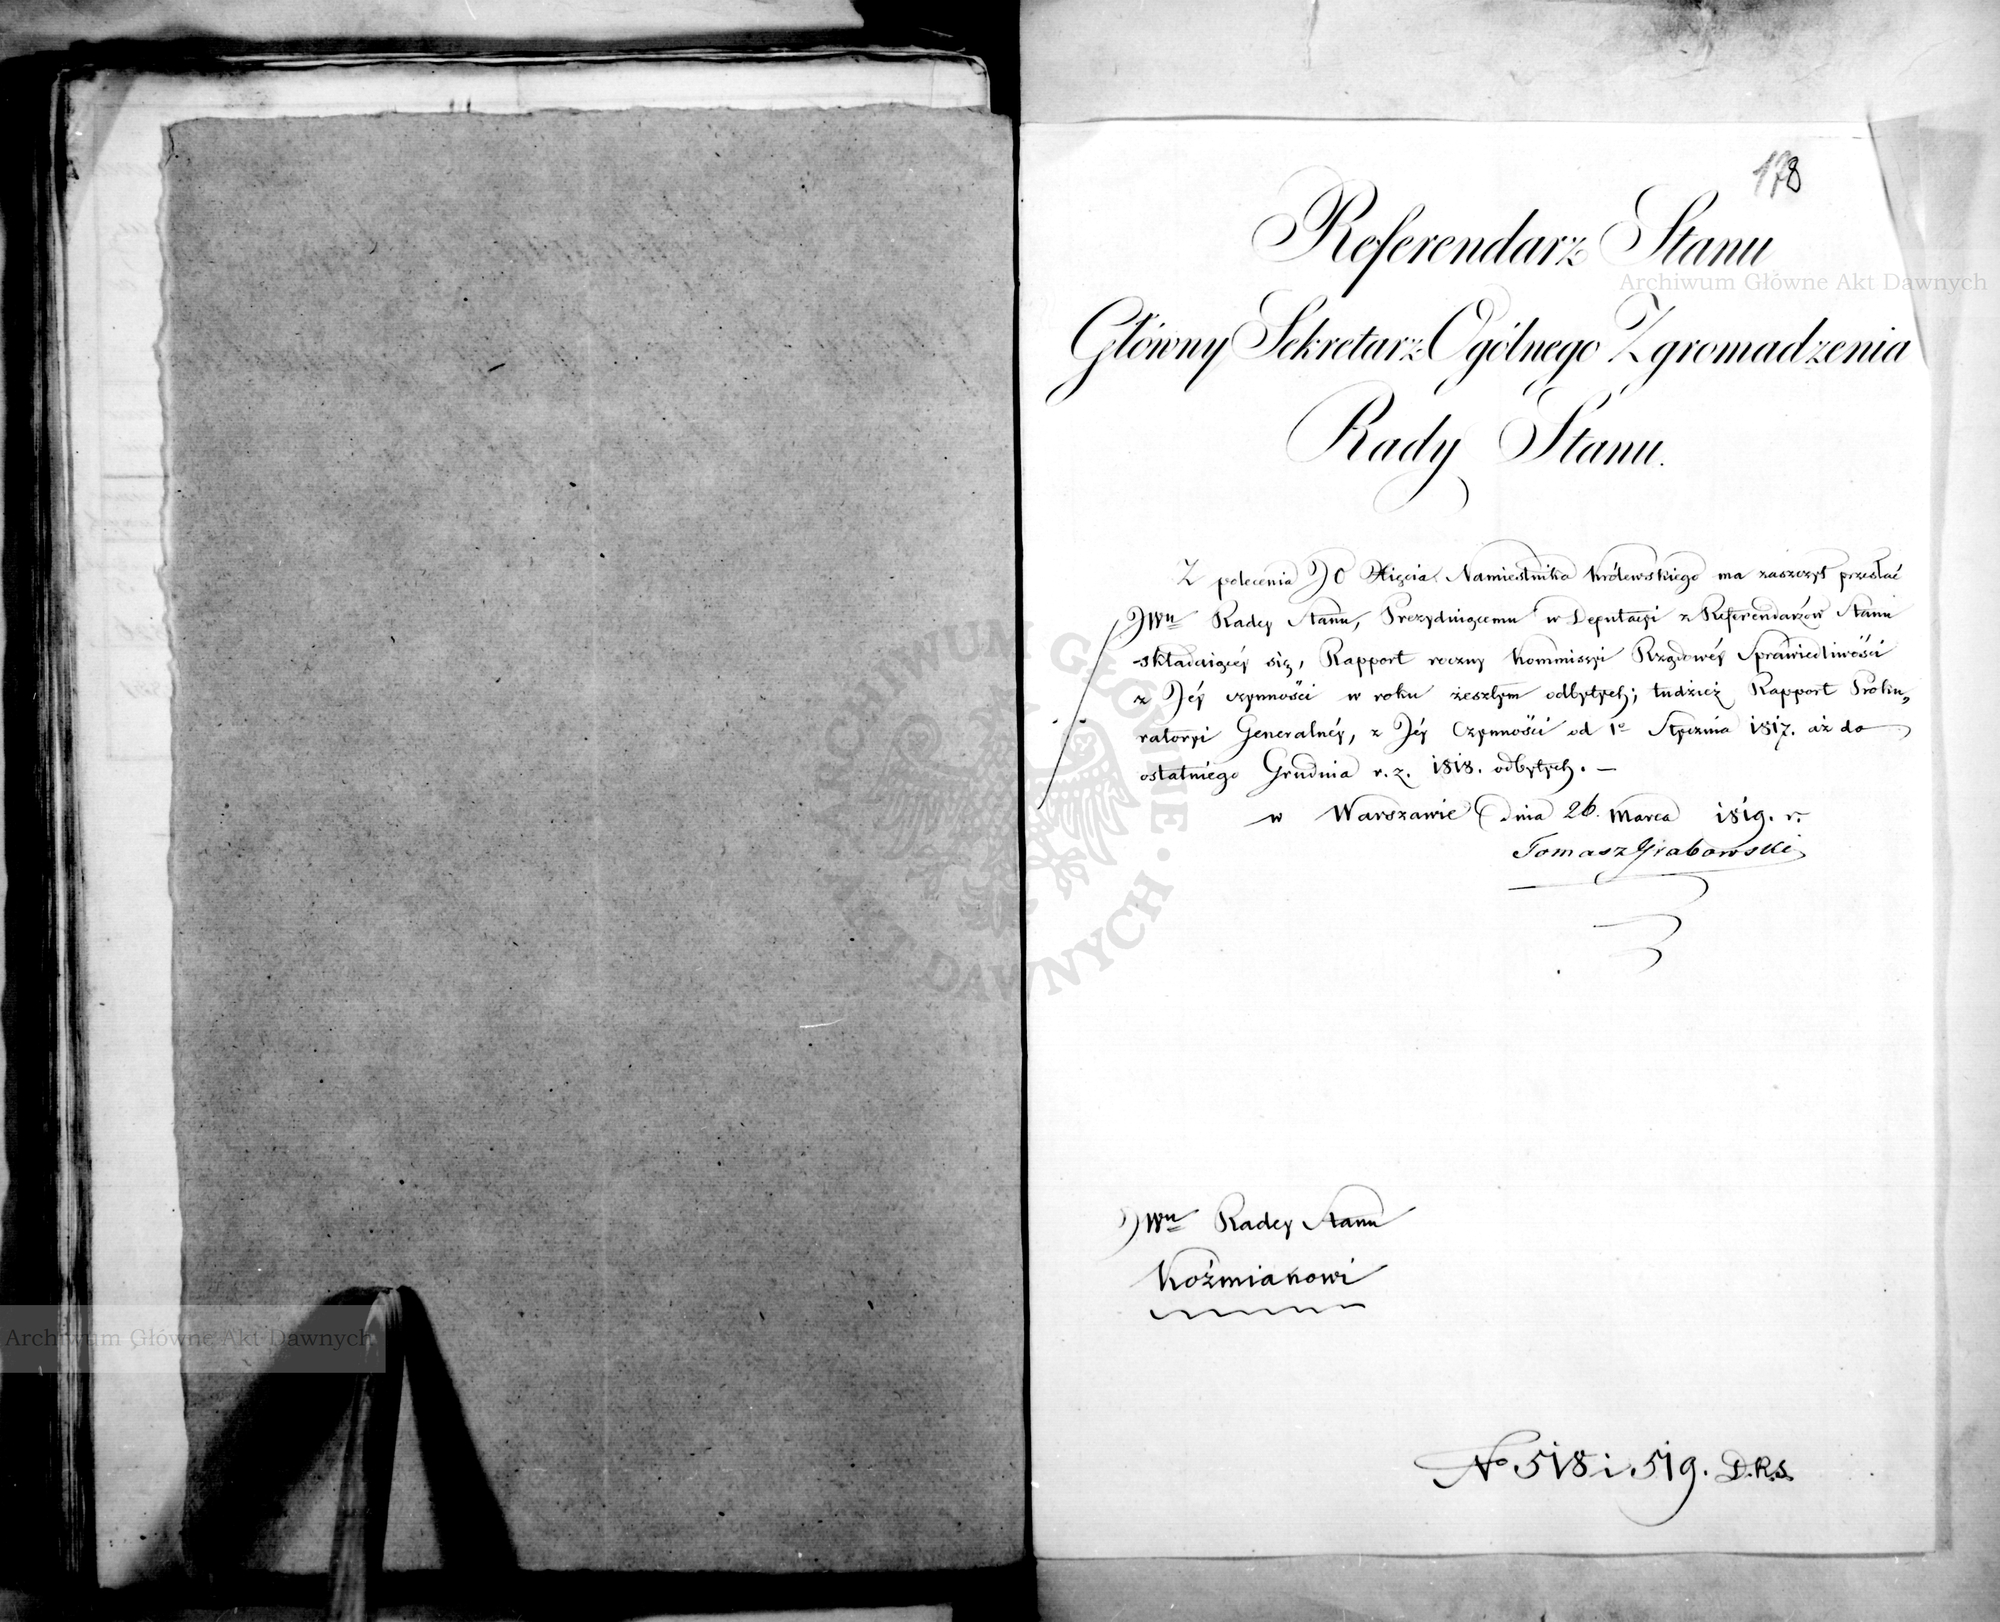 178
Referendarz Stanu
Główny Sekretarz Ogólnego Zgromadzenia
Rady Stanu.
Z polecenia JO Xięcia Namiestnika Królewskiego ma zaszczyt przesłać
JWu Radcy Stanu, Prezyduiącemu w Deputacyi z Referendarzów Stanu
składaiącéy się, Rapport roczny Kommissyi Rządowéy Sprawiedliwości
z Jéy czynności w roku zeszłym odbytych; tudzież Rapport Proku„
ratoryi Generalnéy, z Jéy Czynności od 1o Stycznia 1817. aż do
ostatniego Grudnia r. z. 1818. odbytych. —
w Warszawie dnia 26. Marca 1819. r.
Tomasz Grabowski
JWu Radcy Stanu
Koźmianowi
No 518 i 519. D.R.S.
Archiwum Główne Akt Dawnych
ARCHIWUM GŁÓWNE AKT DAWNYCH
Archiwum Główne Akt Dawnych